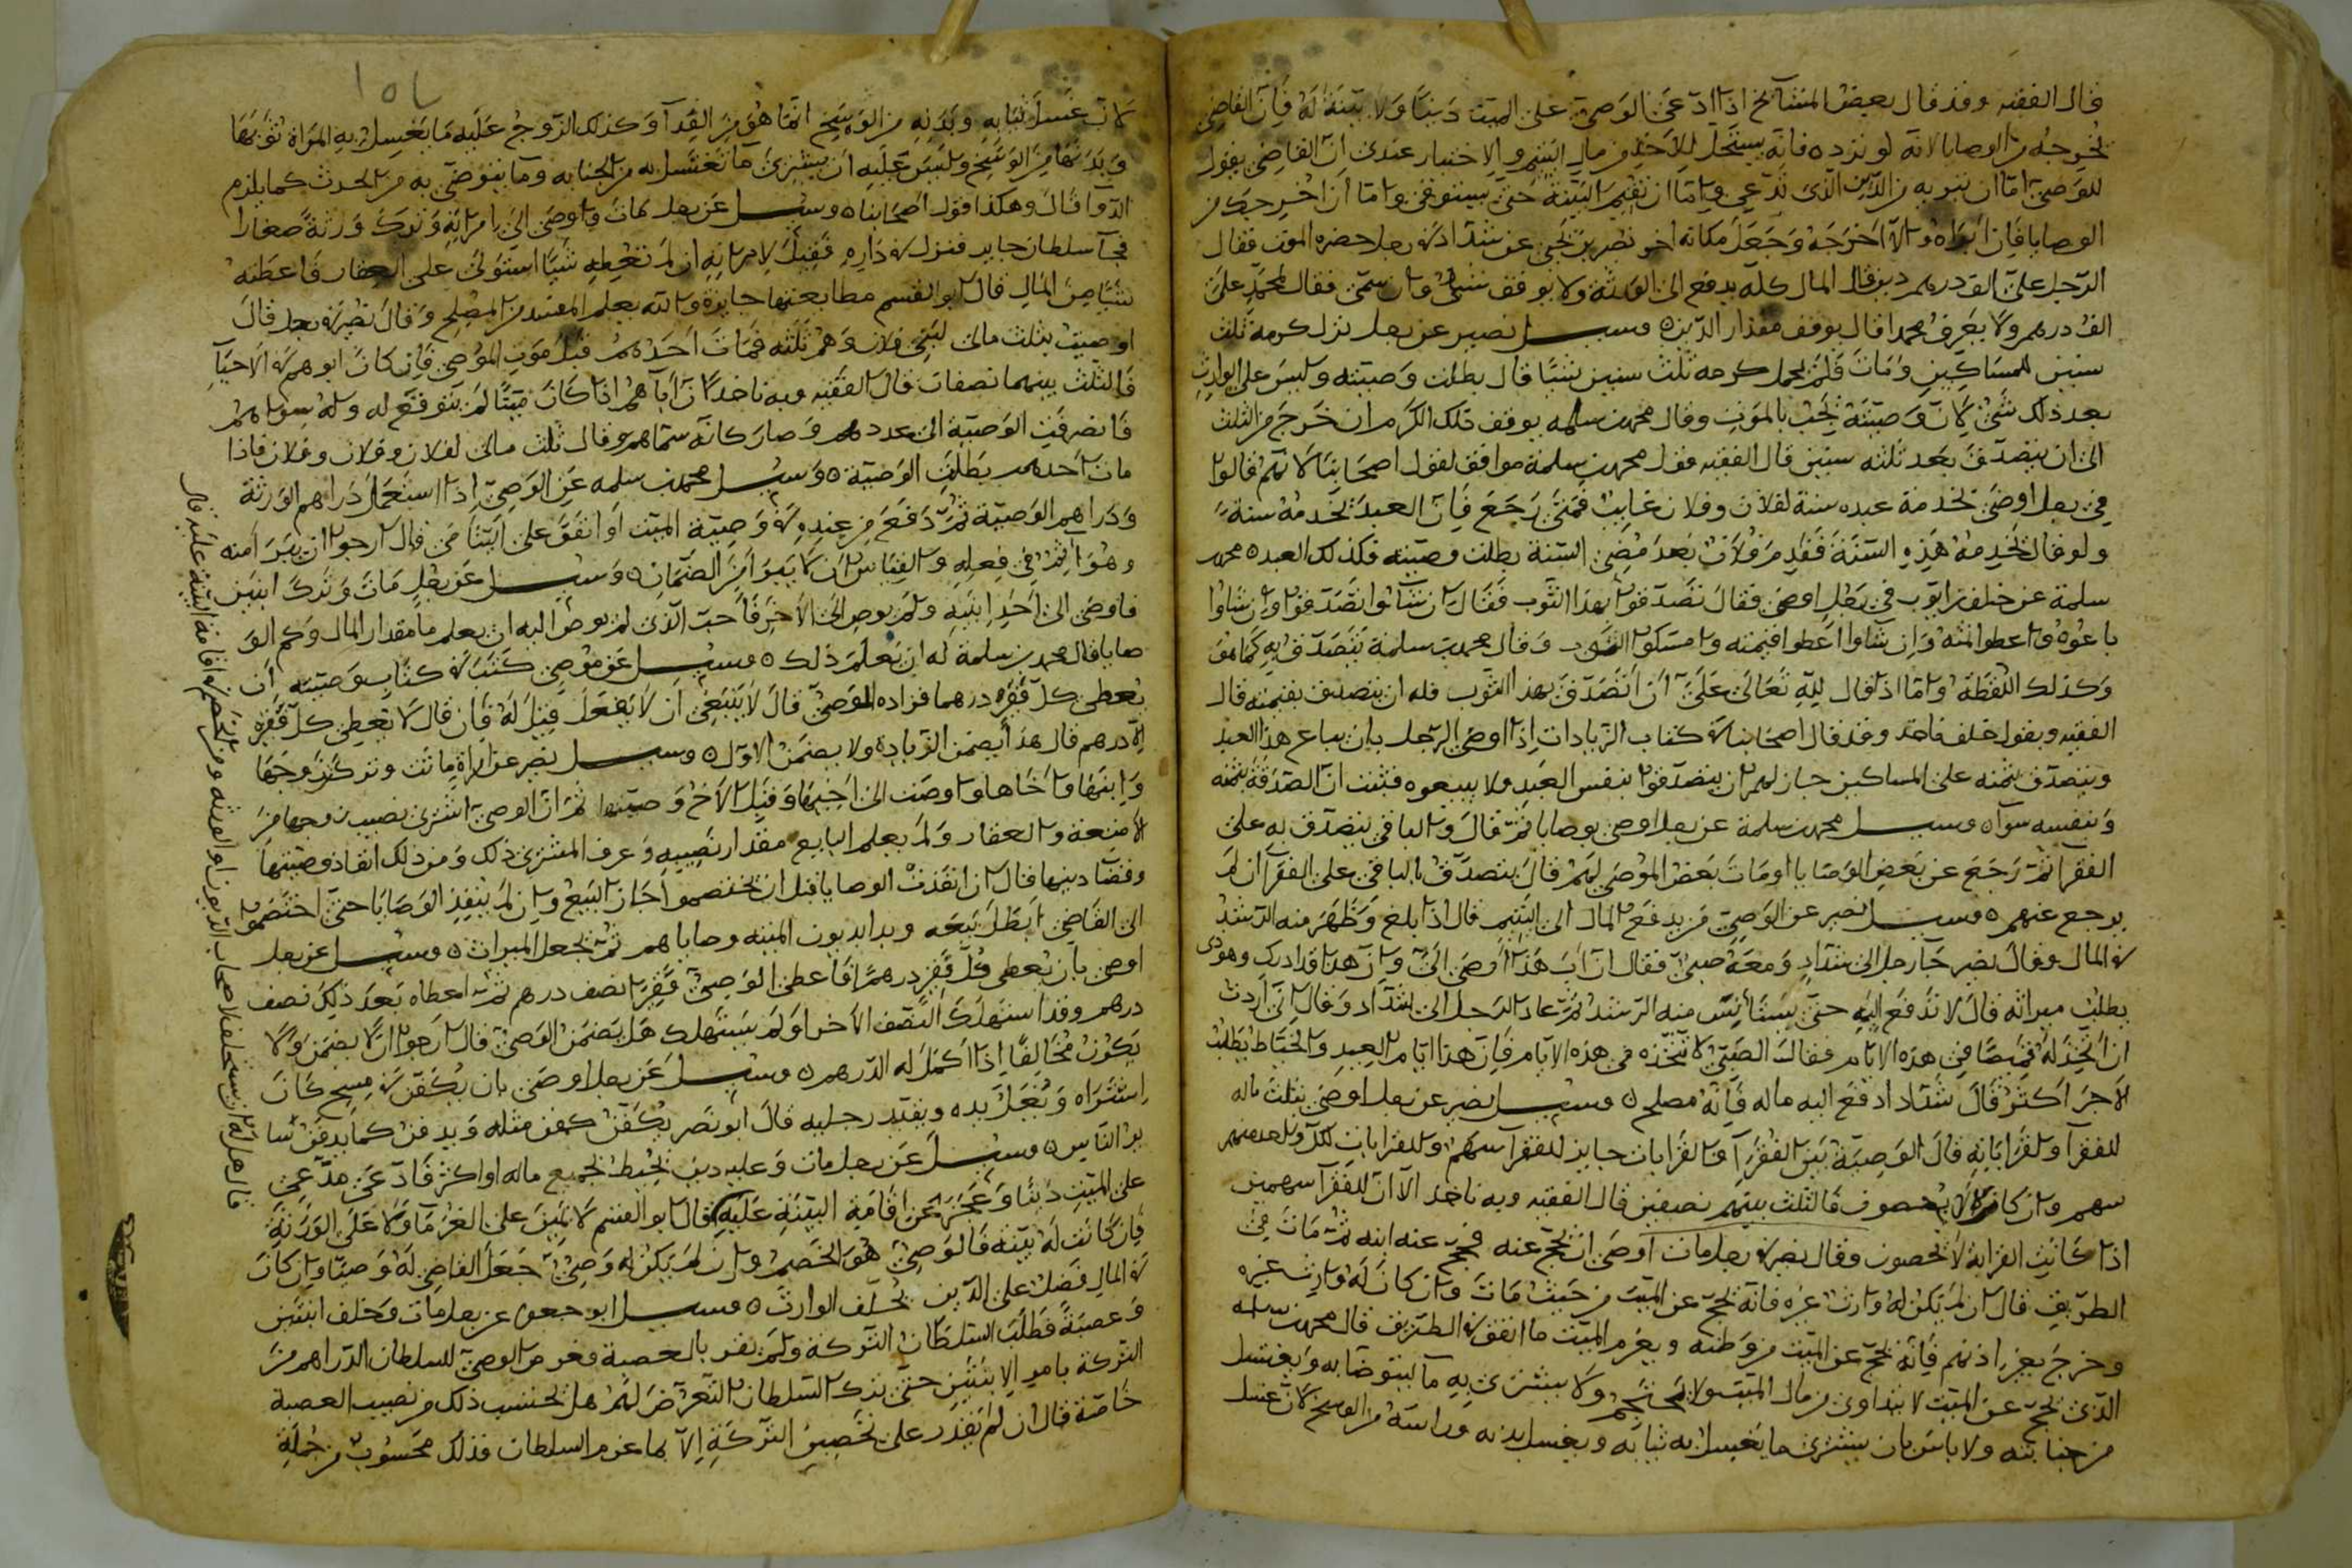 قال الفقيه وقد قال بعض المشآئخ اذا ادّعى الوصيّ على الميت دينًا ولا بينة له فان القاضي
يخرجه من الوصايا لانه لو نرده فانه يستحل الاخذ من مال اليتيم والاختيار عندي ان القاضي يقول
للوصي امّا ان تبريه من الدّين الذي تدّعي وامّا ان تقيم البيّنة حتى يستوفى وامّا ان اخرجك من
الوصايا فان ابراه والا اخرجه وجعل مكانه اخر نصير بن يحيى عن شداد في رجل حضره الموت فقال
لرجل عليّ الف درهم دين قال المال كله يدفع الى الورثة ولا يوقف شئ وان سمى فقال لمحمد عليّ
الف درهم ولا يعرف محمدا قال يوقف مقدار الدّين ٥ وسئل نصير عن رجل نزل كرمه ثلث
سنين للمساكين ومات فلم يحمل كرمه ثلث سنين شيًا قال بطلت وصيته وليس على الوارث
بعد ذلك شئ لان وصيته تجب بالموت وقال محمد بن سلمه يوقف تلك الكرم ان خرج من الثلث
الى ان يتصدّق بعد ثلثه سنين قال الفقيه قول محمد بن سلمة موافق لقول اصحابنا لانهم قالوا
في رجل اوصى بخدمة عبده سنة لفلان وفلان غايب فمتى رجع فان العبد يخدمه سنة
ولو قال يخدمه هذه السنة فقدم فلان بعد مضي السنة بطلت وصيته فكذلك العبد ٥ محمد بن
سلمة عن خلف بن ايوب في رجل اوصى فقال تصدقوا بهذا الثوب فقال ان شاوا تصدقوا وان شاوا
باعوه واعطوا ثمنه وان شاوا اعطوا قيمته وامسكوا الثوب وقال محمد بن سلمة يتصدق به كما هو
وكذلك اللقطة وامّا اذا قال لله تعالى عليّ ان اتصدّق بهذا الثوب فله ان يتصدق بقيمته قال
الفقيه وبقول خلف ناخذ وقد قال اصحابنا في كتاب الزيادات اذا اوصى الرجل بان يباع هذا العبد
ويتصدّق بثمنه على المساكين جاز لهم ان يتصدقوا بنفس العبد ولا يبيعوه فثبت انّ الصدقة بثمنه
وبنفسه سوآ ٥ وسئل محمد بن سلمة عن رجل اوصى بوصايا ثم قال والباقي يتصدّق به على
الفقرآ ثم رجع عن بعض الوصايا او مات بعض الموصى لهم قال يتصدّق بالباقي على الفقرآ ان لم
يرجع عنهم ٥ وسئل نصير عن الوصيّ متى يدفع المال الى اليتيم قال اذا بلغ وظهر منه الرشد
في المال وقال نصير جآ رجل الى شداد ومعه صبي فقال ان اب هذا اوصى اليّ وان هذا قد ادرك وهوذى
يطلب ميراثه قال لا تدفع اليه حتى يستأنس منه الرشد ثم عاد الرجل الى شداد وقال اني اردت
ان اتخذ له قميصًا في هذه الايام فقال الصبي لا تتخذه في هذه الايام فان هذا ايام العيد والخياط يطلب
الاجر اكثر قال شداد ادفع اليه ماله فانه مصلح ٥ وسئل نصير عن رجل اوصى بثلث ماله
للفقرآ ولقراباته قال الوصية بين الفقرآ والقرابات جايز للفقرآ سهم وللقرابات لكل واحد منهم
سهم وان كانوا لا يحصون فالثلث بينهم نصفين قال الفقيه وبه ناخذ الا ان للفقرآ سهمين
اذا كانت القرابة لا يحصون وقال نصير في رجل مات اوصى ان يحج عنه فحج عنه ابنه ثم مات في
الطريق قال ان لم يكن له وارث غيره فانه يحج عن الميت من حيث مات وان كان له وارث غيره
وخرج بغير اذنهم فانه يحج عن الميت من وطنه ويغرم الميت ما انفق في الطريق قال محمد بن سلمه
الذي يحج عن الميت لا يتداوى من مال الميت ولا يحتجم ولا يشتري به مآ ليتوضا به ويغتسل
من جنابته ولا باس بان يشتري ما يغسل به ثيابه ويغسل بدنه وراسه من الوسخ لان غسل
١٥٤
لان غسل ثيابه وبدنه من الوسخ انما هو من الغدآ وكذلك الزوج عليه ما يغسل به المراة ثوبها
وبدنها من الوسخ وليس عليه ان يشتري مآ تغتسل به من الجنابه ومآ يتوضى به من الحدث كما يلزم
الدوآ قال وهكذا قول اصحابنا ٥ وسئل عن رجل مات واوصى الى امراته وترك ورثة صغارا
فجآ سلطان جاير فنزل في داره فقيل لامراته ان لم تعطه شيًا استولى على العقار فاعطته
شيًا من المال قال ابو القسم مطابعتها جايزة والله يعلم المفسد من المصلح وقال نصير في رجل قال
اوصيت بثلث مالي لبني فلان وهم ثلثه فمات احدهم قبل موت الموصي فان كان ابوهم في الاحيآ
فالثلث بينهما نصفان قال الفقيه وبه ناخذ لان اباهم اذا كان ميتًا لم يتوقع له ولد سواهم
فانصرفت الوصية الى عددهم وصار كانه سماهم وقال ثلث مالي لفلان وفلان وفلان فاذا
مات احدهم بطلت الوصية ٥ وسئل محمد بن سلمه عن الوصيّ اذا استعمل دراهم الورثة
ودراهم الوصية ثم دفع من عنده في وصية الميت او انفق على ايتامى قال ارجوا ان يبرا منه
وهو اثم في فعله والقياس ان لا يبرا من الضمان ٥ وسئل عن رجل مات وترك ابنين
فاوصى الى احد ابنيه ولم يوص الى الاخر فاحب الذي لم يوص اليه ان يعلم ما مقدار المال وكم الو
صايا قال محمد بن سلمة له ان يعلم ذلك ٥ وسئل عن موصي كتب في كتاب وصيته ان
يعطى كل فقير درهما فزاده الموصيّ قال لا ينبغي ان لا يفعل قيل له فان قال لا يعطى كل فقير
الا درهم قال هذا يضمن الزيادة ولا يضمن الاول ٥ وسئل نصير عن امراة ماتت وتركت زوجها
وابنتها واخاها واوصت الى اجنبي وقبل الاخ وصيتها ثم ان الوصيّ اشترى نصيب زوجها من
الامتعة والعقار ولم يعلم البايع مقدار نصيبه وعرف المشتري ذلك ومن ذلك انفاذ وصيتها
وقضآ دينها قال ان انفذت الوصايا قبل ان يختصموا اجاز البيع وان لم ينفذ الوصايا حتى اختصموا
الى القاضي ابطل بيعه وبدا بديون الميته وصاياهم ثم يجعل الميراث ٥ وسئل عن رجل
اوصى بان يعطى كل فقير درهمًا فاعطى الوصيّ فقيرًا نصف درهم ثم اعطاه بعد ذلك نصف
درهم وقد استهلك النصف الاخر او لم يستهلك هل يضمن الوصيّ قال ارجوا ان لا يضمن ولا
يكون مخالفًا اذا اكمل له الدرهم ٥ وسئل عن رجل اوصى بان يكفن في مسح كان
اشتراه وتغل يده ويقيد رجليه قال ابو نصر يكفن كفن مثله ويدفن كما يدفن سا
ير الناس ٥ وسئل عن رجل مات وعليه دين يحيط بجميع ماله او اكثر فادعى مدّعي
على الميت دينًا وعجز عن اقامة البيّنة عليه قال ابو القسم لا يمين على الغرمآ ولا على الورثة
فان كانت له بيّنه فالوصيّ هو الخصم وان لم يكن له وصيّ جعل القاضي له وصيًا وان كان
في المال فضل على الدين يحلف الوارث ٥ وسئل ابو جعفر عن رجل مات وخلف ابنتين
وعصبةً فطلب السلطان التركة ولم تقر بالعصبة فغرم الوصيّ للسلطان الدراهم من
التركة بامر الابنتين حتى ترك السلطان التعرّض لهم هل يحتسب ذلك من نصيب العصبة
خاصة قال ان لم يقدر على تحصين التركة الا بما غرم السلطان فذلك محسوب من جملة